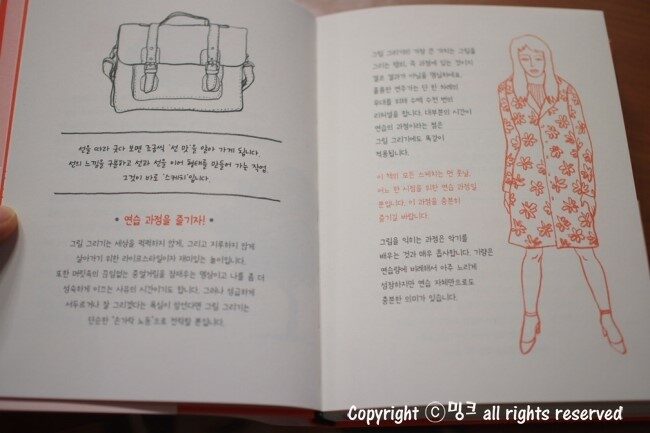 선을 따라 긋다 보면 조금씩 '선 맛'을 알아 가게 됩니다.
선의 느낌을 구분하고 선과 선을 이어 형태를 만들어 가는 작업,
그것이 바로 '스케치'입니다.
• 연습 과정을 즐기자! •
그림 그리기는 세상을 퍽퍽하지 않게, 그리고 지루하지 않게
살아가기 위한 라이프스타일이자 재미있는 놀이입니다.
또한 머릿속의 끊임없는 중얼거림을 잠재우는 명상이고 나를 좀 더
성숙하게 이끄는 사유의 시간이기도 합니다. 그러나 성급하게
서두르거나 잘 그리겠다는 욕심이 앞선다면 그림 그리기는
단순한 '손가락 노동'으로 전락할 뿐입니다.
그림 그리기의 가장 큰 가치는 그림을
그리는 행위, 즉 과정에 있는 것이지
결코 결과가 아님을 명심하세요.
훌륭한 연주가는 단 한 차례의
무대를 위해 수백 수천 번의
리허설을 합니다. 대부분의 시간이
연습의 과정이라는 점은
그림 그리기에도 똑같이
적용됩니다.
이 책의 모든 스케치는 먼 훗날,
어느 한 시점을 위한 연습 과정일
뿐입니다. 이 과정을 충분히
즐기길 바랍니다.
그림을 익히는 과정은 악기를
배우는 것과 매우 흡사합니다. 기량은
연습량에 비례해서 아주 느리게
성장하지만 연습 자체만으로도
충분한 의미가 있습니다.
Copyright ⓒ 밍크 all rights reserved